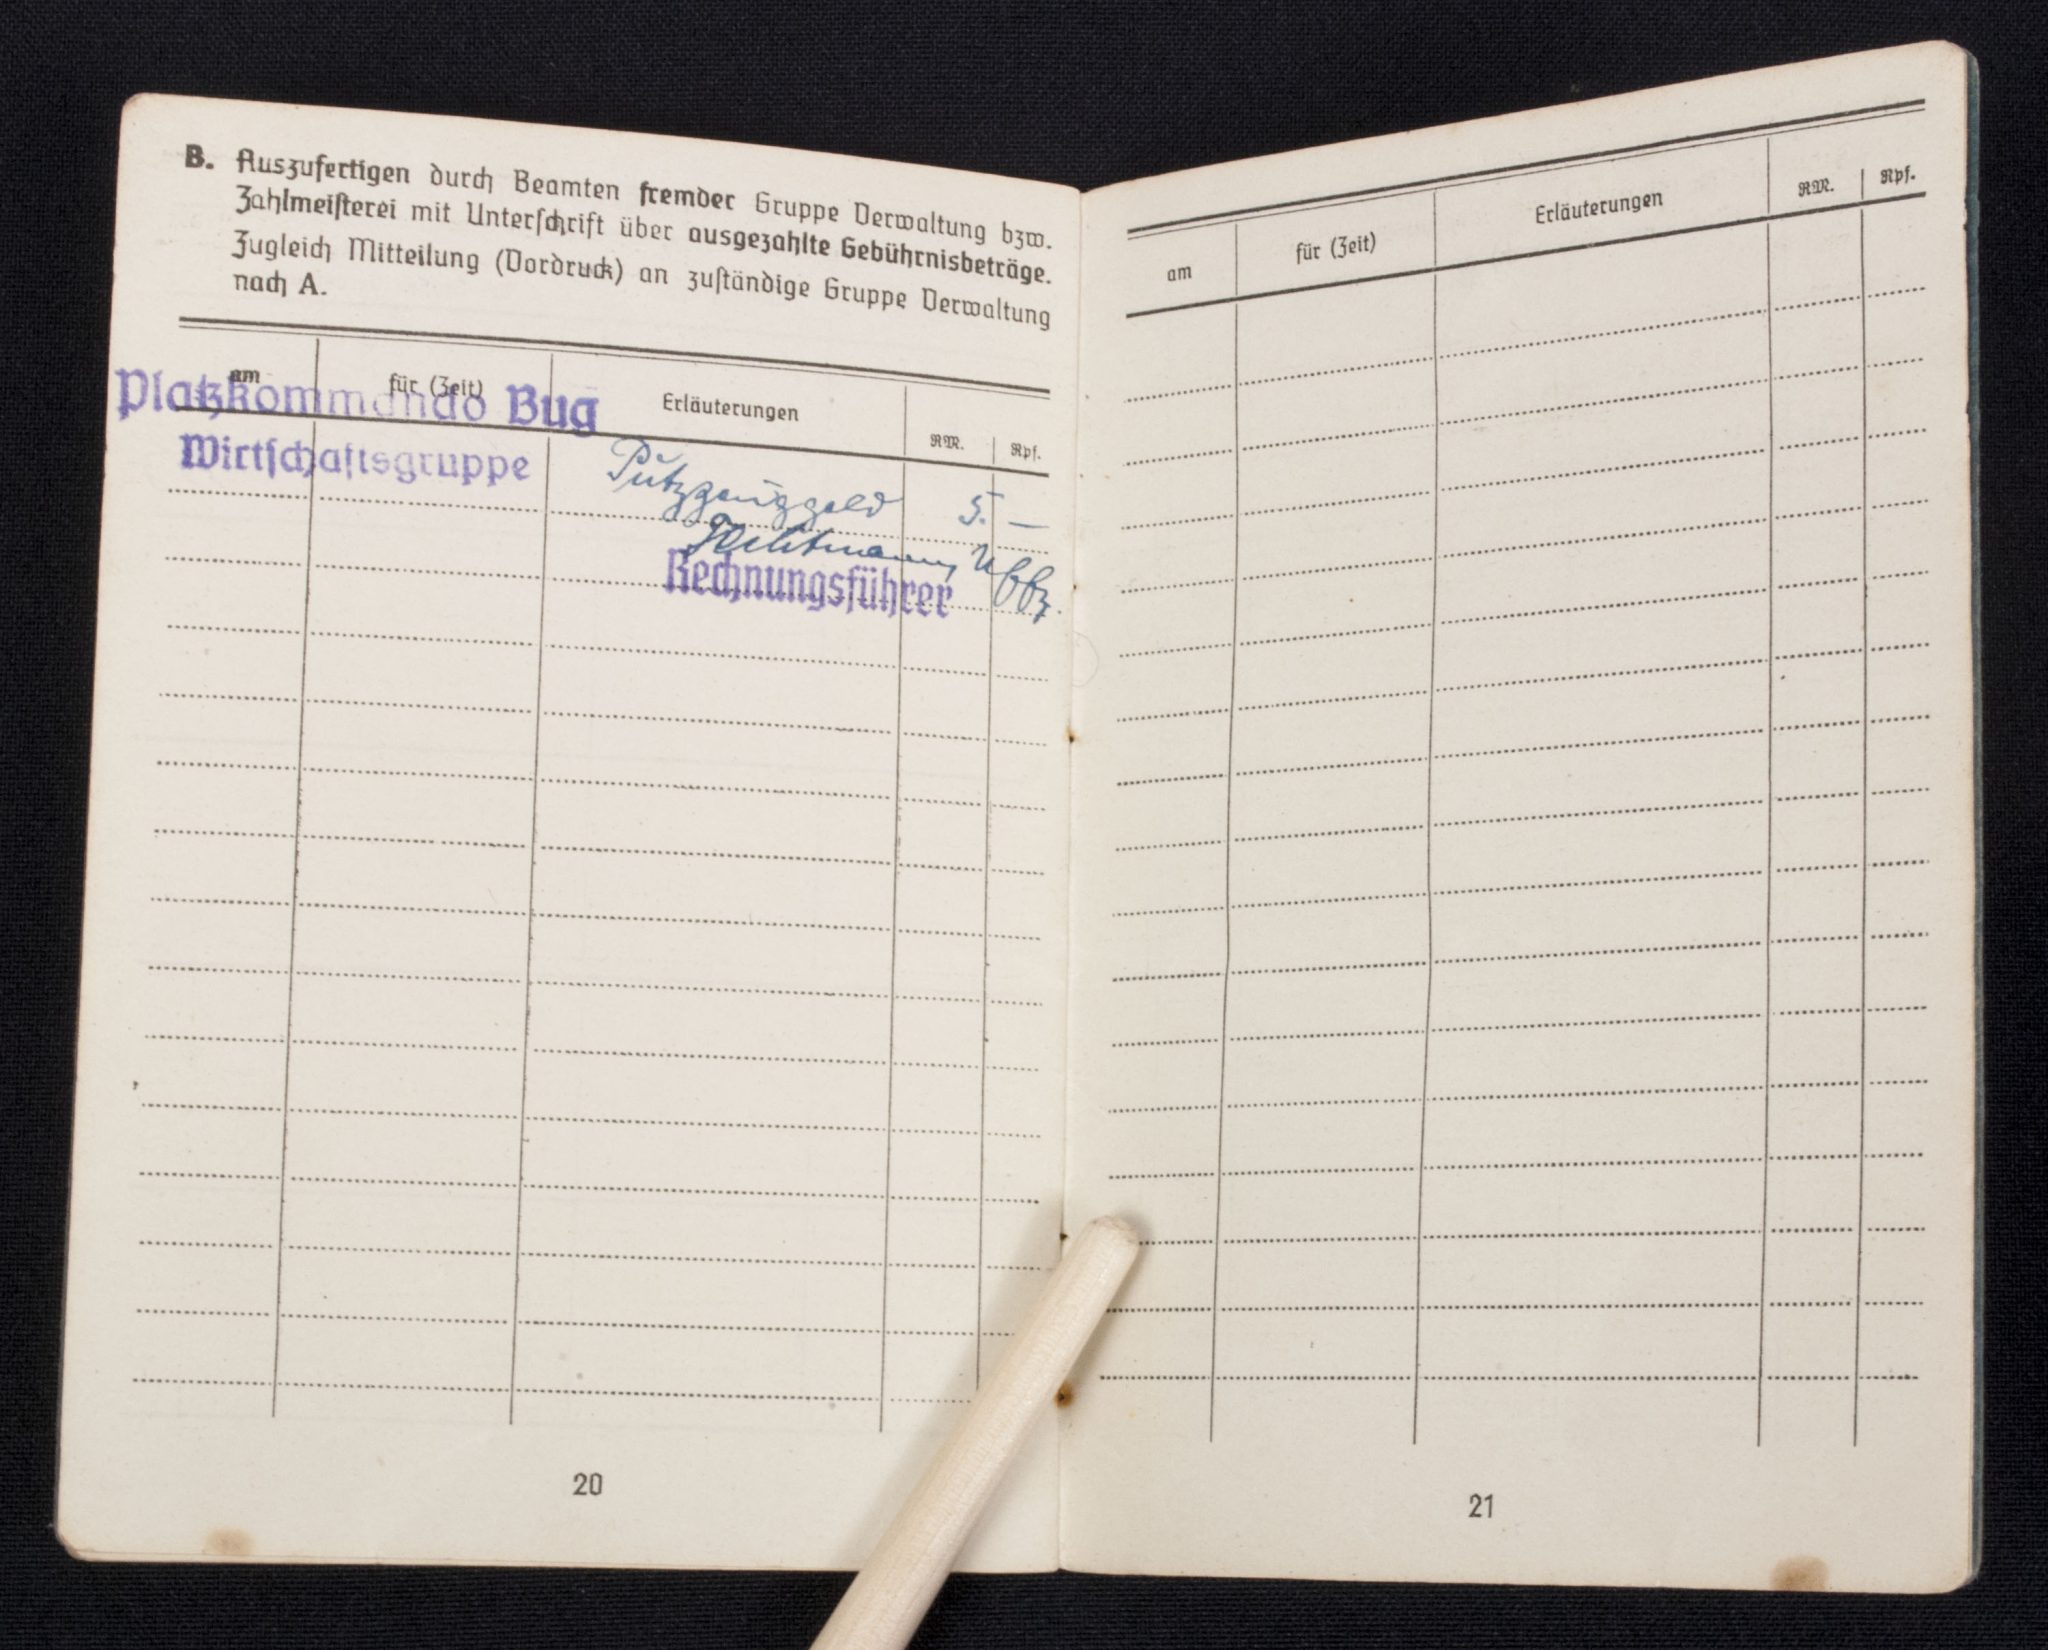 B. Auszufertigen durch Beamten fremder Gruppe Verwaltung bzw.
Zahlmeisterei mit Unterschrift über ausgezahlte Gebührnisbeträge.
Zugleich Mitteilung (Vordruck) an zuständige Gruppe Verwaltung
nach A.
am für (Zeit) Erläuterungen RM. Rpf.
Platzkommando Bug
Wirtschaftsgruppe
Putzzeuggeld 5. —
Uffz.
Rechnungsführer
20
am für (Zeit) Erläuterungen RM. Rpf.
21